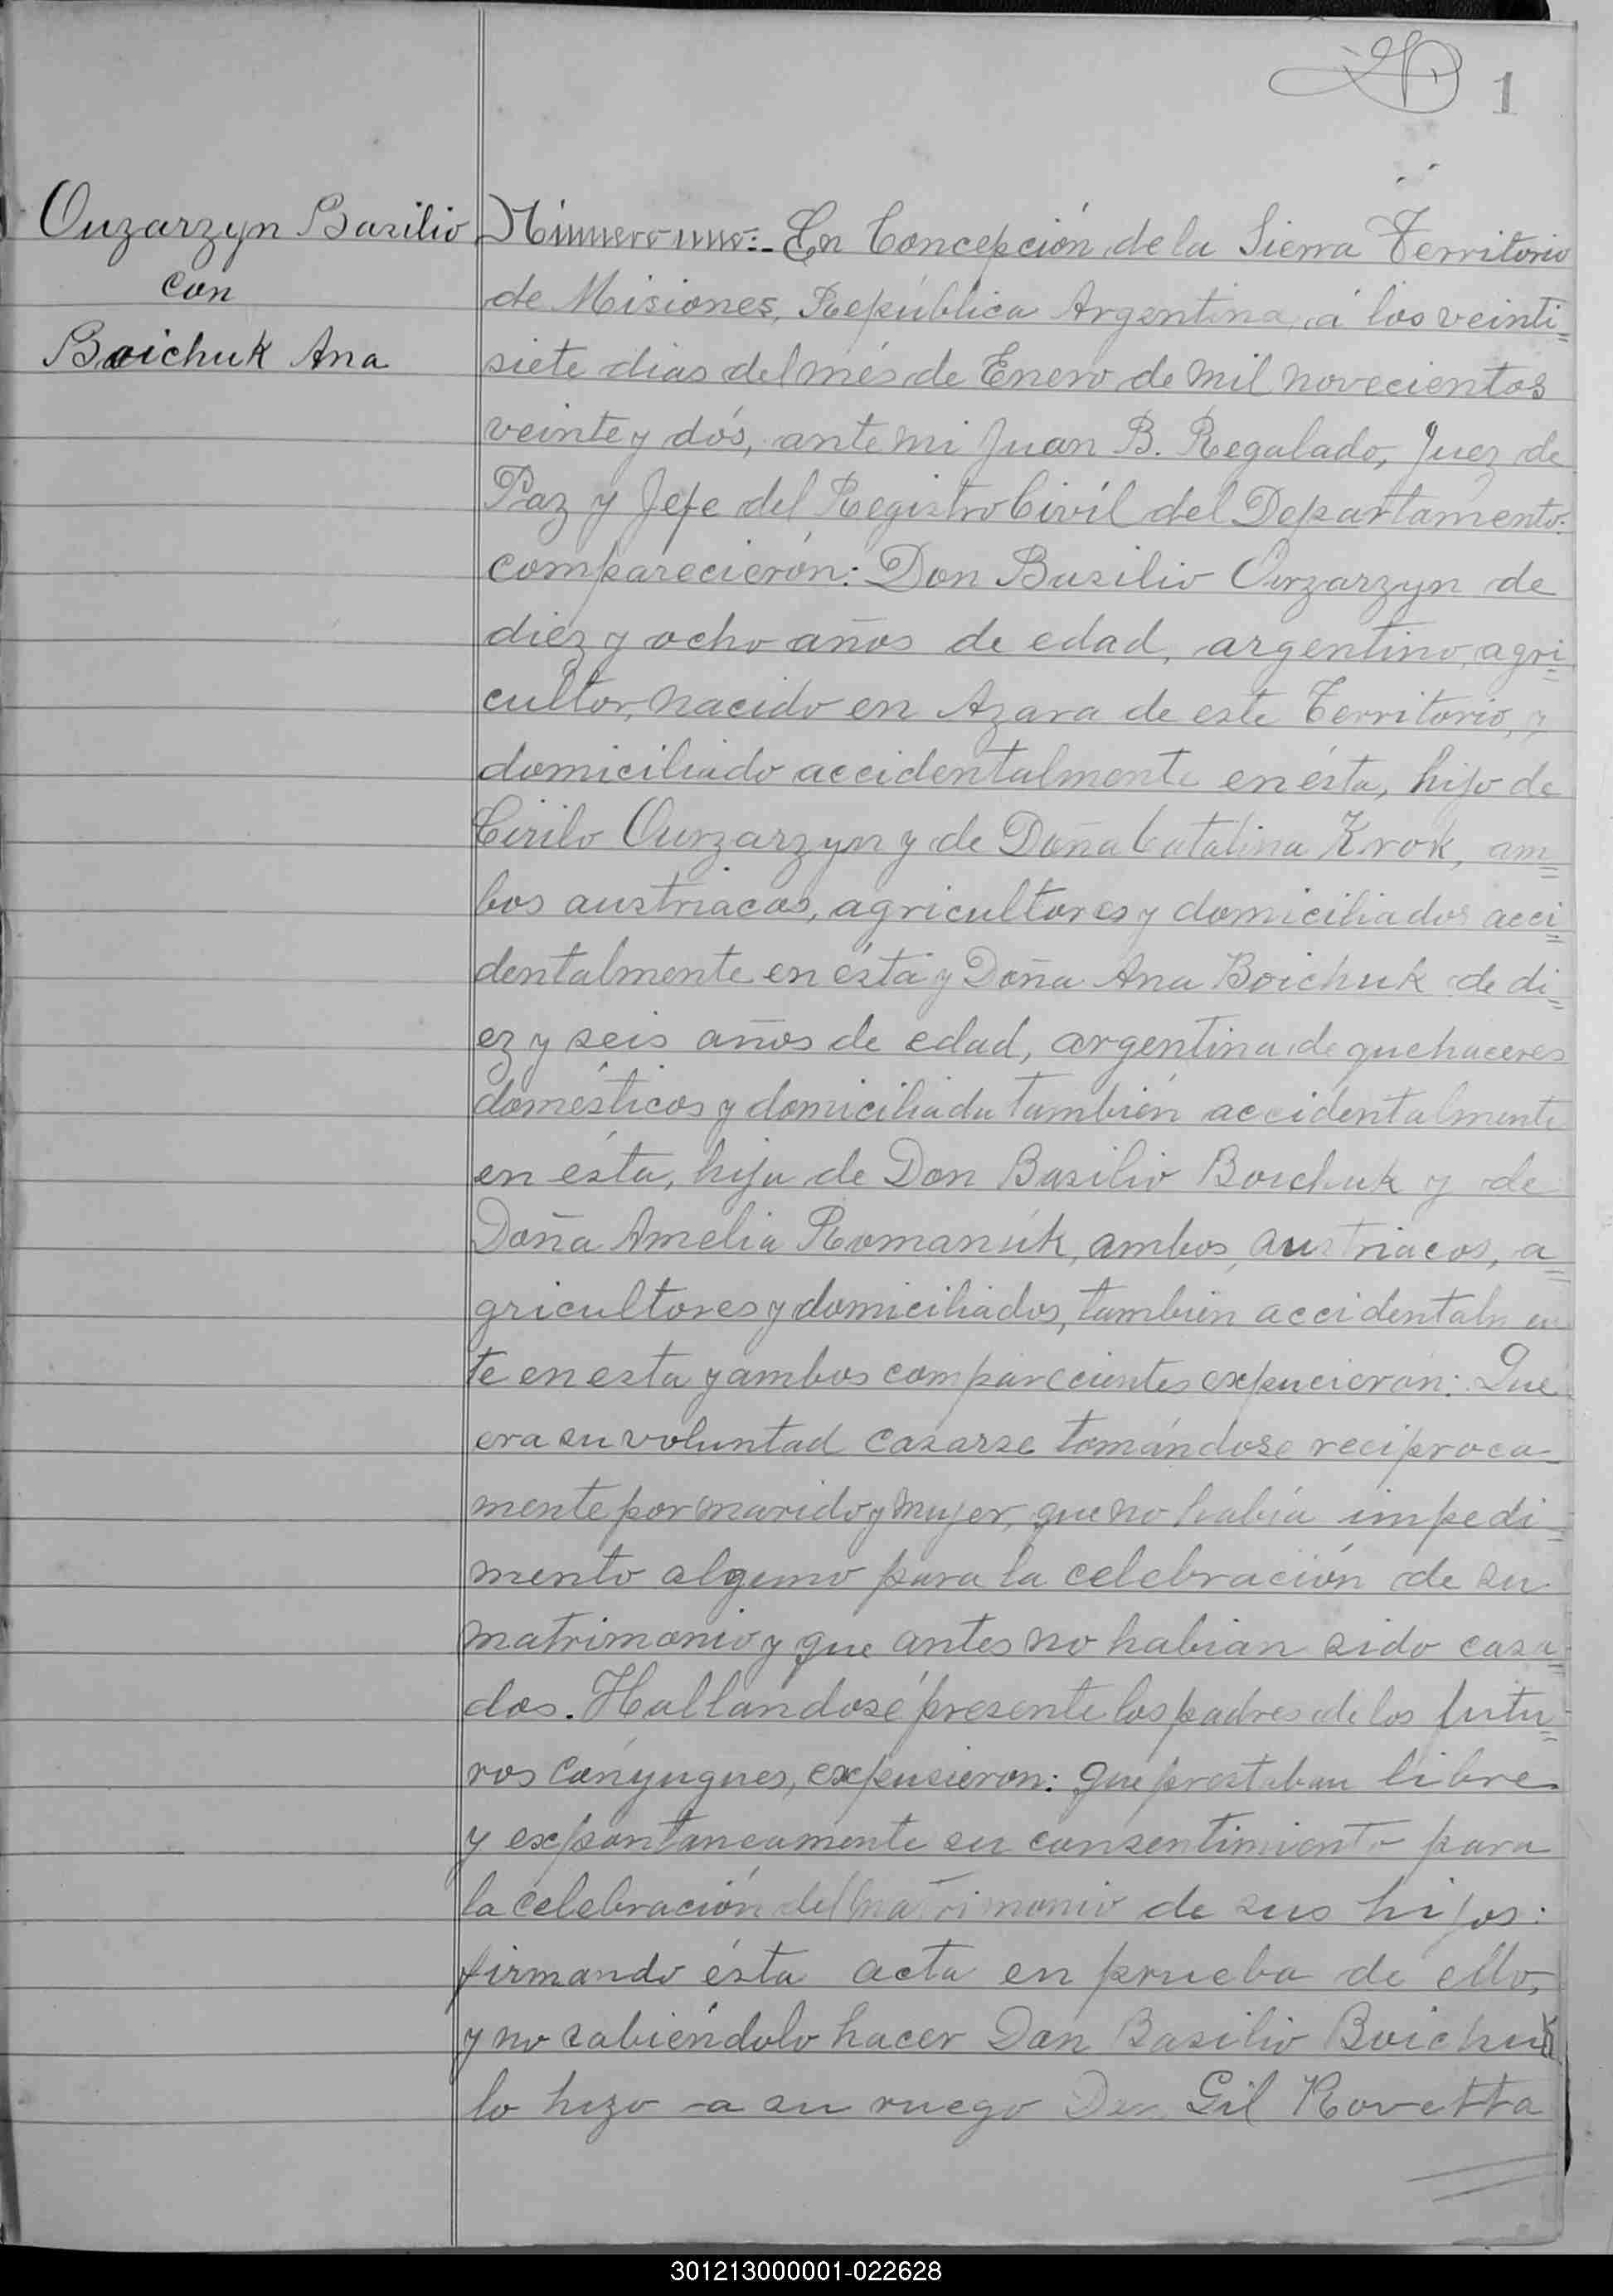 1
Ouzarzyn Basilio
con
Boichuk Ana
Número uno:- En Concepción de la Sierra Territorio
de Misiones, República Argentina, á los veinti=
siete dias del més de Enero de mil novecientos
veinte y dós, ante mi Juan B. Regalado, Juez de
Paz y Jefe del Registro Civíl del Departamento:
comparecierón: Don Basilio Ouzarzyn de
diez y ocho años de edad, argentino, agri=
cultor, nacido en Azara de este Territorio, y
domiciliado accidentalmente en ésta, hijo de
Cirilo Ouzarzyn y de Doña Catalina Krok, am=
bos austriacos, agricultores y domiciliados acci=
dentalmente en ésta y Doña Ana Boichuk de di=
ez y seis años de edad, argentina, de quehaceres
domésticos y domiciliada también accidentalmente
en ésta, hija de Don Basilio Boichuk y de
Doña Amelia Romanúk, ambos, austriacos, a=
gricultores y domiciliados, también accidentalmen
te en esta y ambos comparecientes expucieron: Que
era su voluntad casarse tomándose reciproca-
mente por marido y mujer, que no había impedi=
mento alguno para la celebración de su
matrimonio y que antes no habian sido casa=
dos. Hallandosé presente los padres de los futu=
ros conyugues, expusieron: que prestaban libre
y expontaneamente su consentimiento para
la celebración del matrimonio de sus hijos:
firmando ésta acta en prueba de ello,
y no sabiéndolo hacer Don Basilio Boichuk
lo hizo a su ruego Don Gil Rovetta
301213000001-022628